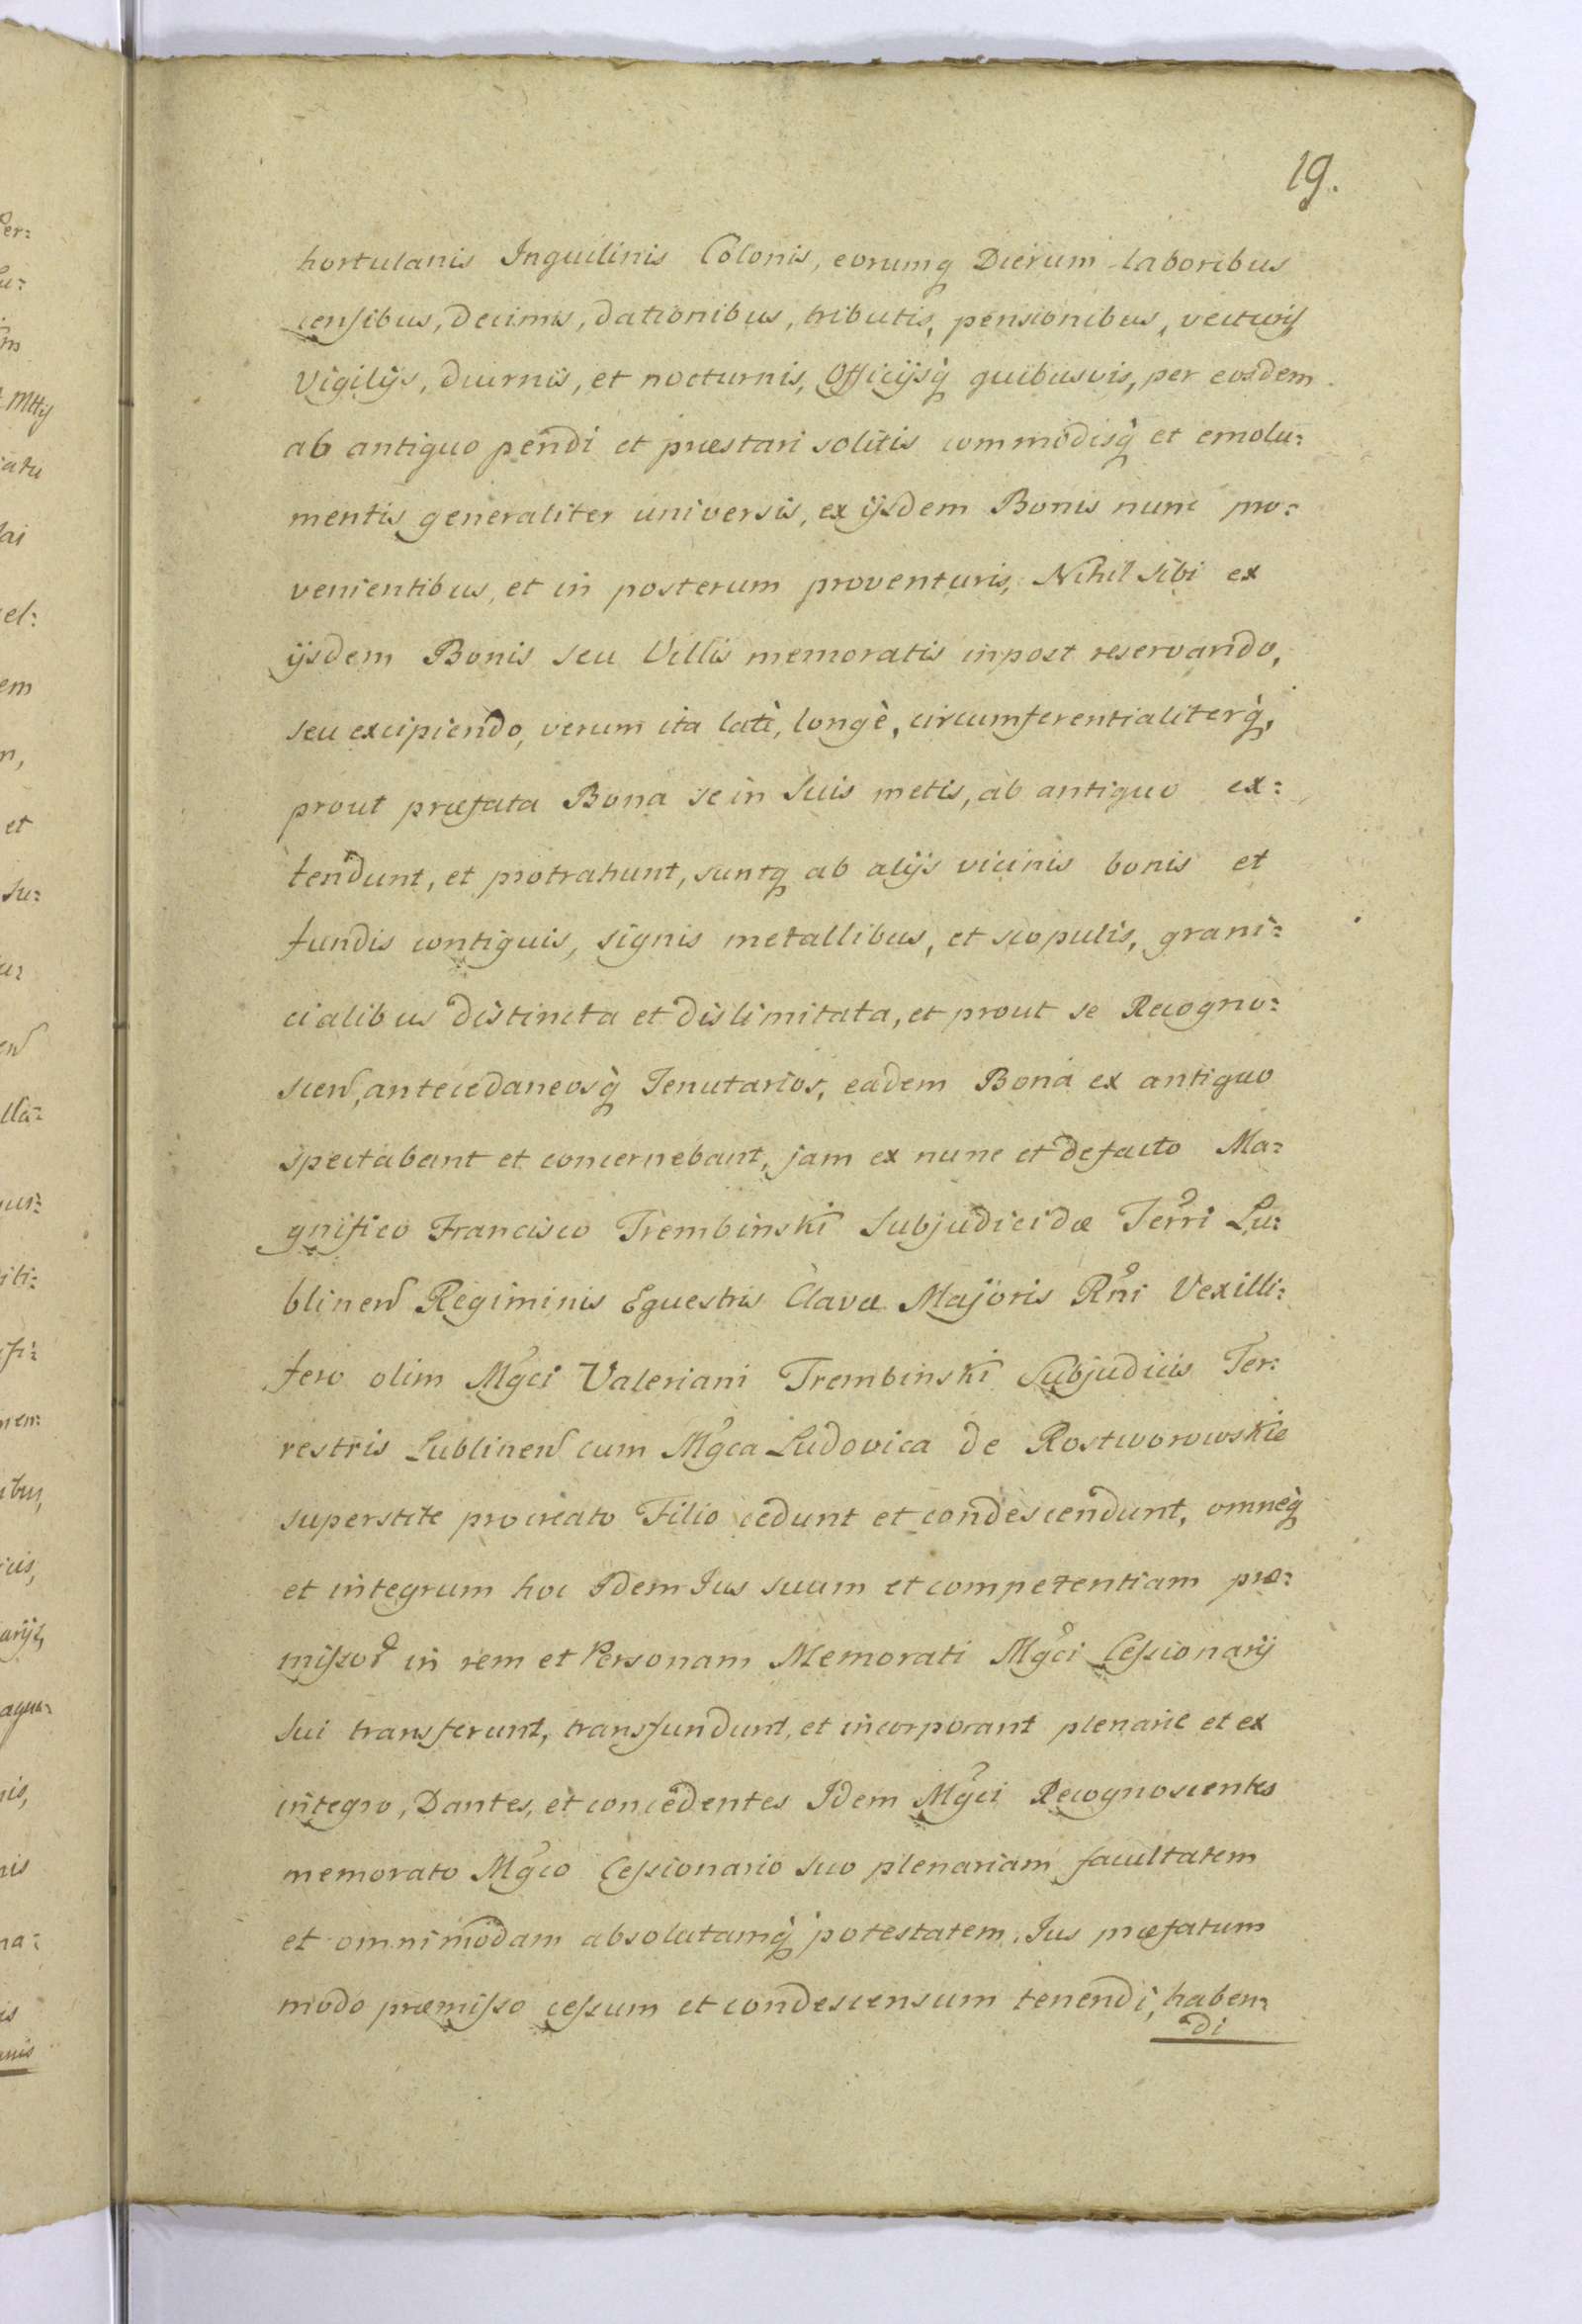 19.
hortulanis Inquilinis Colonis, eorumq Dierum laboribus
censibus, Decimis, dationibus, tributis, pensionibus, vecturis
Vigilijs, diurnis, et nocturnis, Officijsq̀ quibusvis, per eosdem
ab antiquo pendi et præstari solitis commodisq̀ et emolu:
mentis generaliter universis, ex ijsdem Bonis nunc pro:
venientibus, et in posterum proventuris, Nihil sibi ex
ijsdem Bonis seu Villis memoratis inpost reservando,
seu excipiendo, verum ita latè, longè, circumferentialiterq̀,
prout præfata Bona se in suis metis, ab antiquo ex:
tendunt, et protrahunt, suntq ab alijs vicinis bonis et
fundis contiguis, signis metallibus, et scopulis, grani:
cialibus distincta et dislimitata, et prout se Recogno:
scen, antecedaneosq̀ Tenutarios, eadem Bona ex antiquo
spectabant et concernebant, jam ex nunc et defacto Ma:
gnifico Francisco Trembinski Subjudicidæ Terri Lu:
blinen Regiminis Equestris Clavæ Majoris Rni Vexilli:
fero olim Mgci Valeriani Trembinski Subjudicis Ter:
restris Lublinen cum Mgca Ludovica de Rostworowskie
superstite procreato Filio cedunt et condescendunt, omneq̀
et integrum hoc Idem Jus suum et competentiam præ:
missor in rem et Personam Memorati Mgci Cessionarij
sui transferunt, transfundunt, et incorporant plenarie et ex
integro, Dantes, et concedentes Idem Mgci Recognoscentes
memorato Mgco Cessionario suo plenariam facultatem
et omnimodam absolutamq̀ potestatem, Jus præfatum
modo præmisso cessum et condescensum tenendi, haben:
di